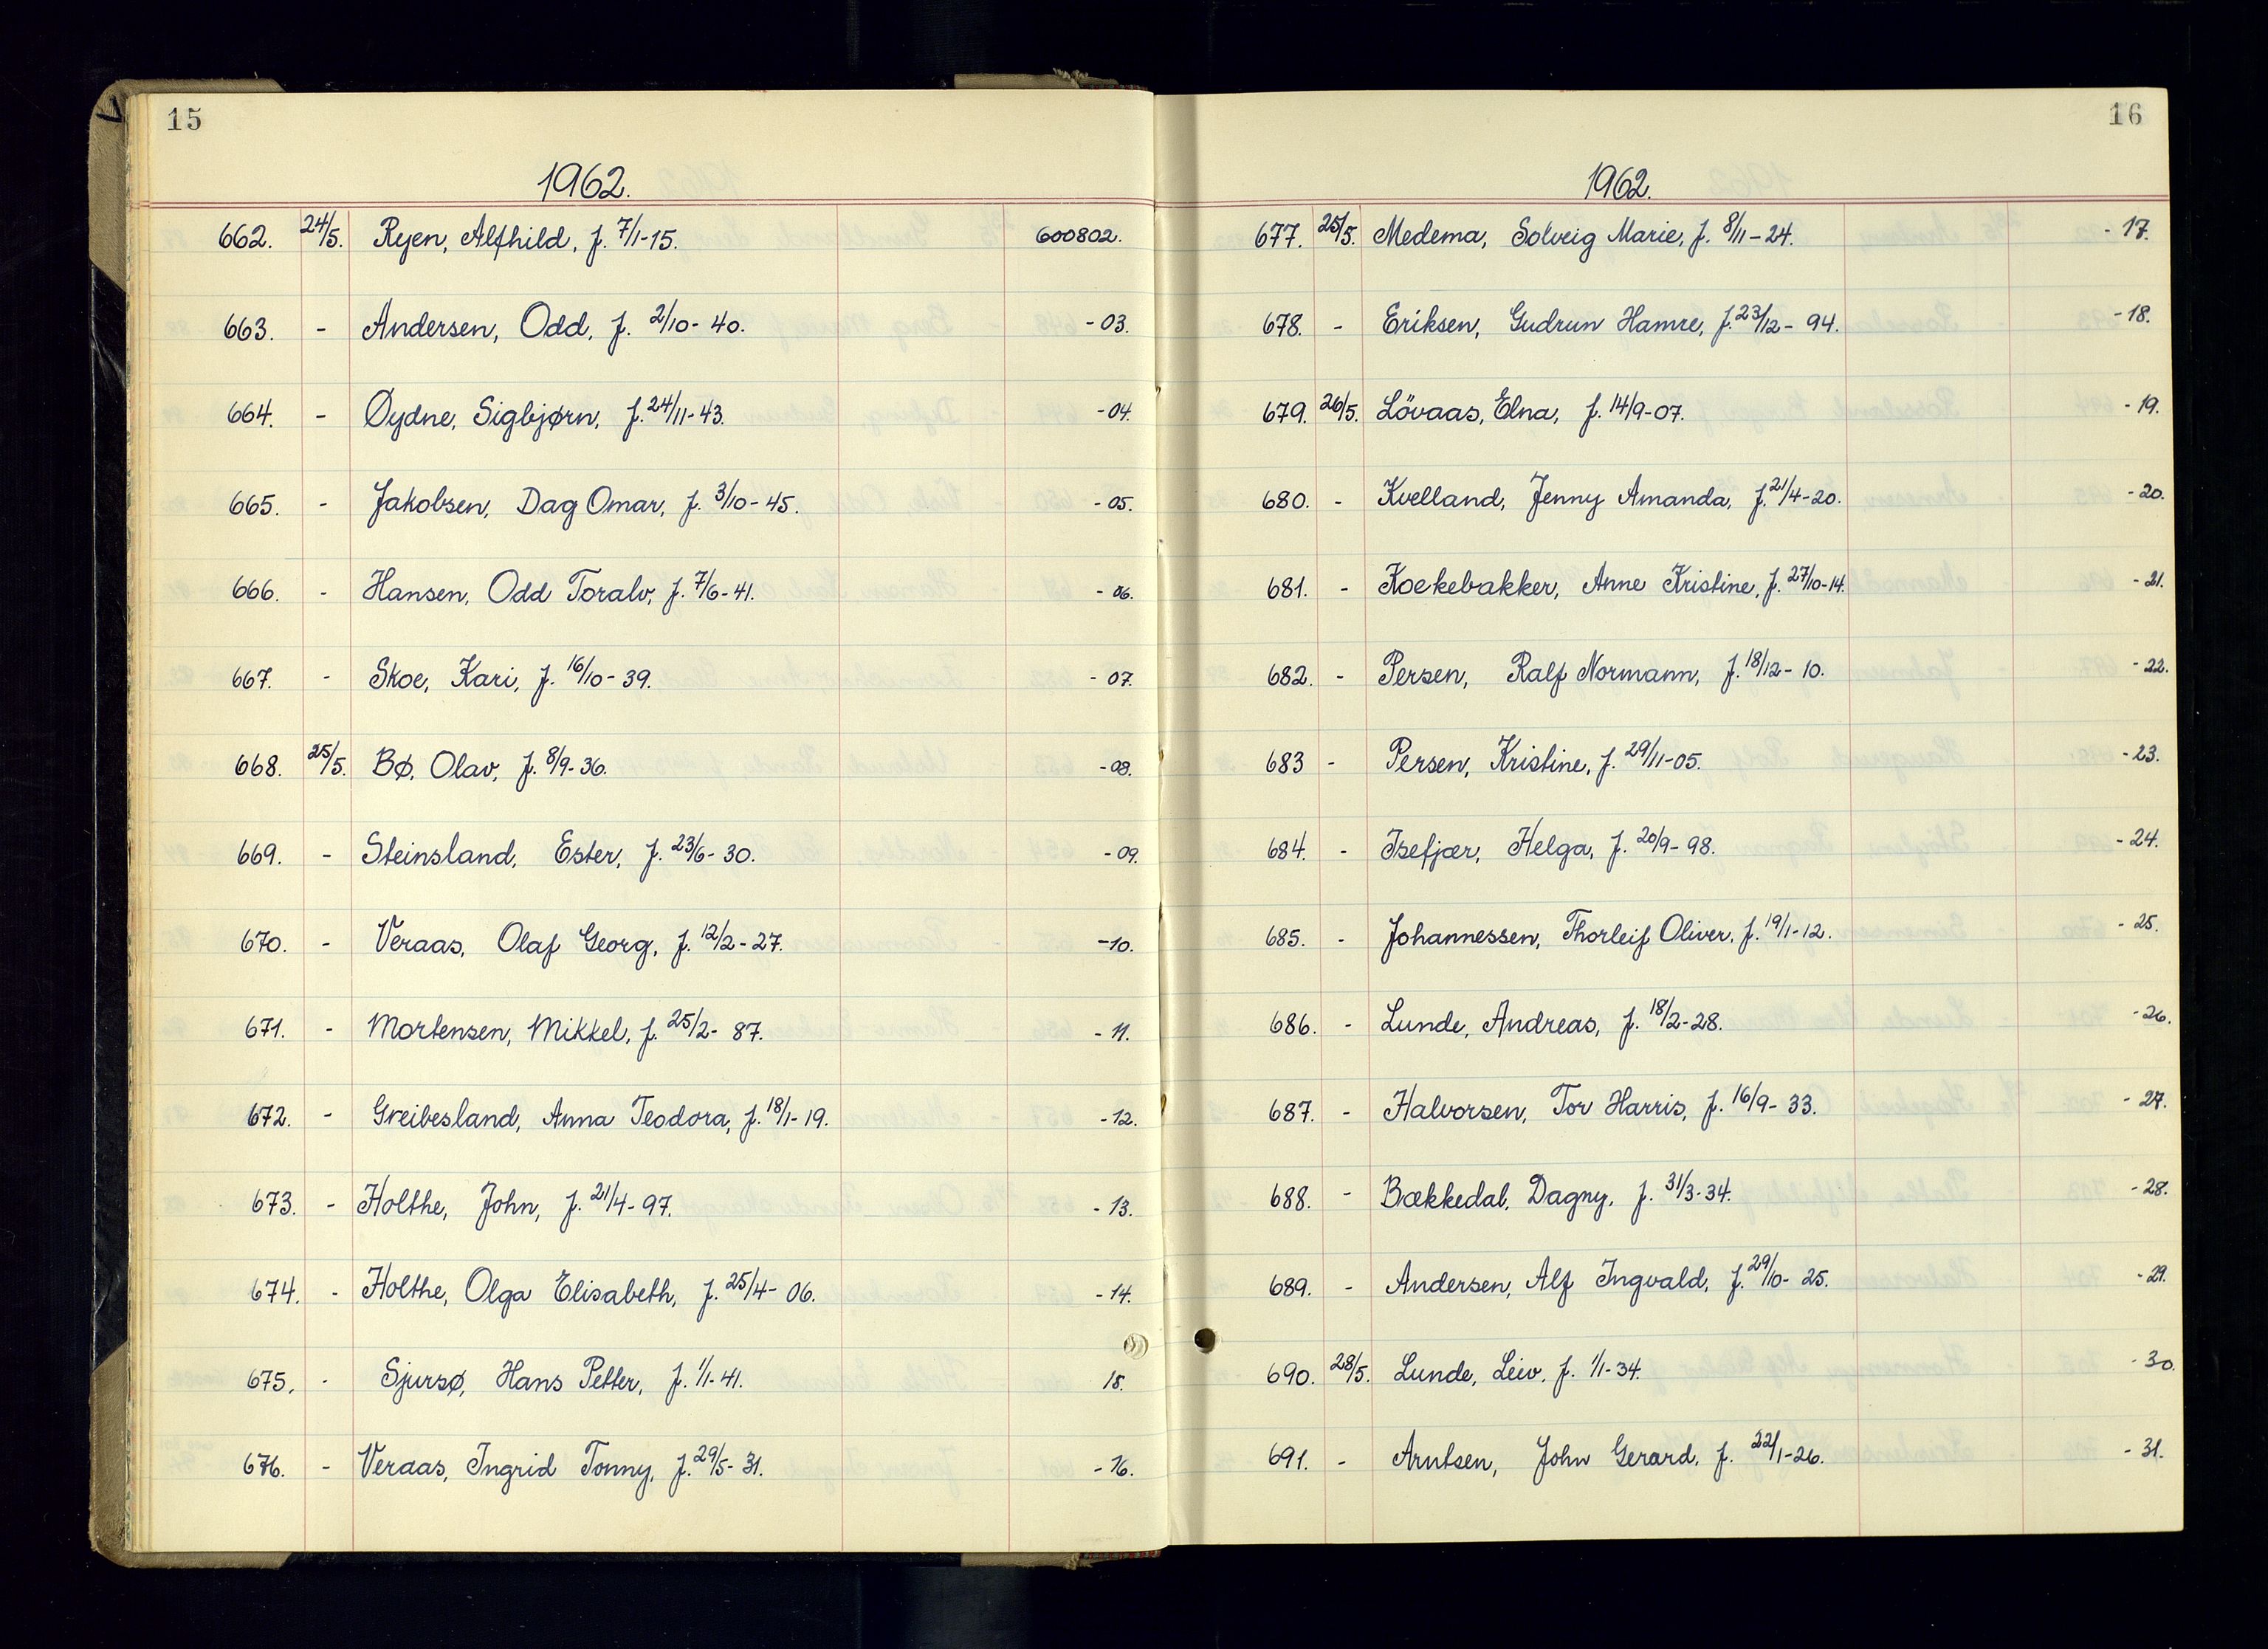 15
1962.
662. 24/5. Ryen, Alfhild, f. 7/1-15. 600802.
663. - Andersen, Odd, f. 2/10-40. -03.
664. - Øydne, Sigbjørn, f. 24/11-43. -04.
665. - Jakobsen, Dag Omar, f. 3/10-45. -05.
666. - Hansen, Odd Toralv, f. 7/6-41. -06.
667. - Skoe, Kari, f. 16/10-39. -07.
668. 25/5. Bø, Olav, f. 8/9-36. -08.
669. - Steinsland, Ester, f. 23/6-30. -09.
670. - Veraas, Olaf Georg, f. 12/2-27. -10.
671. - Mortensen, Mikkel, f. 25/2-87. -11.
672. - Greibesland, Anna Teodora, f. 18/1-19. -12.
673. - Holthe, John, f. 21/4-97. -13.
674. - Holthe, Olga Elisabeth, f. 25/4-06. -14.
675. - Sjursø, Hans Petter, f. 1/1-41. 15.
676. - Veraas, Ingrid Tonny, f. 29/5-31. -16.
16
1962.
677. 25/5. Medema, Solveig Marie, f. 8/11-24. -17.
678. - Eriksen, Gudrun Hamre, f. 23/12-94. -18.
679. 26/5. Lövaas, Elna, f. 14/9-07. -19.
680. - Kvelland, Jenny Amanda, f. 21/4-20. -20.
681. - Koekebakker, Anne Kristine, f. 27/10-14. -21.
682. - Persen, Ralf Normann, f. 18/12-10. -22.
683 - Persen, Kristine, f. 29/11-05. -23.
684. - Isefjær, Helga, f. 20/9-98. -24.
685. - Johannessen, Thorleif Oliver, f. 19/1-12. -25.
686. - Lunde, Andreas, f. 18/2-28. -26.
687. - Halvorsen, Tor Harris, f. 16/9-33. -27.
688. - Bækkedal, Dagny, f. 31/3-34. -28.
689. - Andersen, Alf Ingvald, f. 29/10-25. -29.
690. 28/5. Lunde, Leiv, f. 1/1-34. -30.
691. - Arntsen, John Gerard, f. 22/1-26. -31.